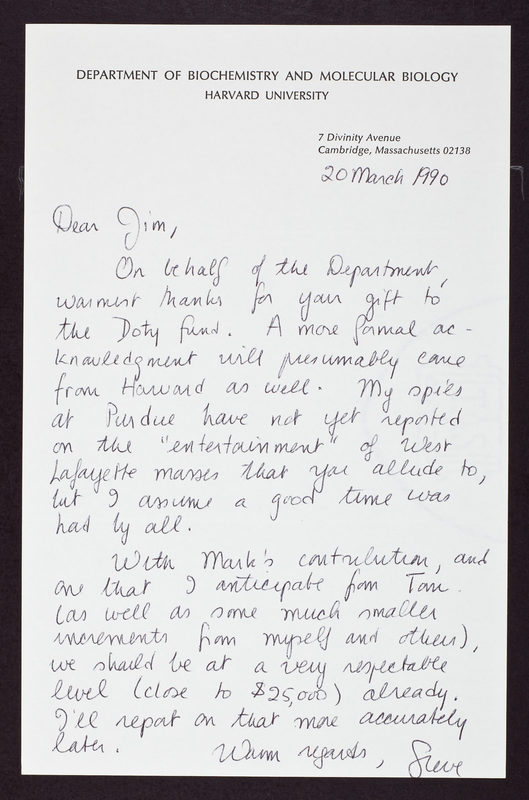 DEPARTMENT OF BIOCHEMISTRY AND MOLECULAR BIOLOGY
HARVARD UNIVERSITY
7 Divinity Avenue
Cambridge, Massachusetts 02138
20 March 1990
Dear Jim,
On behalf of the Department,
warmest thanks for your gift to
the Doty fund. A more formal ac-
knowledgment will presumably come
from Harvard as well. My spies
at Purdue have not yet reported
on the "entertainment" of West
Lafayette masses that you allude to,
but I assume a good time was
had by all.
With Mark's contribution, and
one that I anticipate from Tom
(as well as some much smaller
increments from myself and others),
we should be at a very respectable
level (close to $25,000) already.
I'll report on that more accurately
later.
Warm regards, Steve